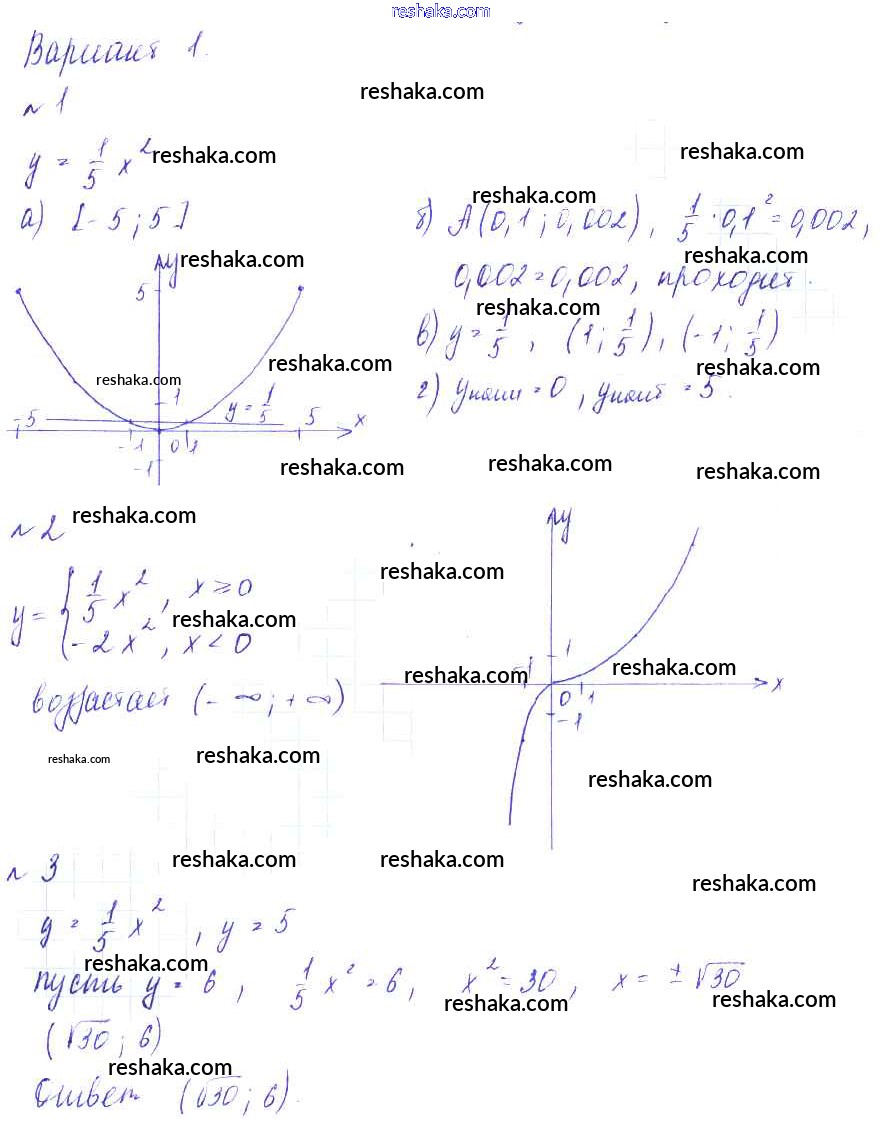 reshaka.com
Вариант 1.
reshaka.com
№ 1
y = 1/5 x² reshaka.com
reshaka.com
а) [-5 ; 5]
reshaka.com
б) A(0,1 ; 0,002), 1/5 · 0,1² = 0,002,
reshaka.com
0,002 = 0,002, проходит.
reshaka.com
в) y = 1/5 , (1 ; 1/5), (-1 ; 1/5)
reshaka.com
г) yнаим = 0 , yнаиб = 5.
y reshaka.com
5
reshaka.com
reshaka.com
1
y = 1/5
-5
5
x
-1 0 1
-1
reshaka.com
reshaka.com
reshaka.com
№ 2 reshaka.com
y = { 1/5 x² , x ≥ 0
reshaka.com
-2x² , x < 0
возрастает (-∞ ; +∞)
reshaka.com
reshaka.com
y
reshaka.com
1
reshaka.com
-1
reshaka.com
0 1
x
-1
reshaka.com
№ 3
reshaka.com
reshaka.com
reshaka.com
y = 1/5 x² , y = 5
reshaka.com
пусть y = 6 , 1/5 x² = 6 , x² = 30 , x = ± √30
reshaka.com
reshaka.com
(√30 ; 6)
reshaka.com
Ответ (√30 ; 6).